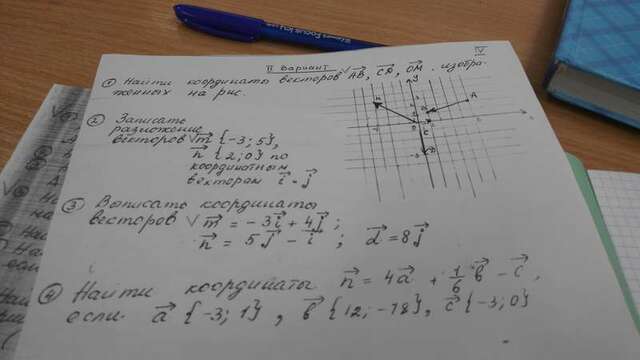 V
II Вариант
① Найти координаты векторов √AB, CD, OM. изобра-
женных на рис.
② Записать
разложение
векторов √m {-3; 5},
n {2; 0} по
координатным
векторам i и j
③ Выписать координаты
векторов √m = -3i + 4j;
n = 5j - i; d = 8j
④ Найти координаты n = 4a + 1/6 b - c,
если a {-3; 1}, b {12; -78}, c {-3; 0}